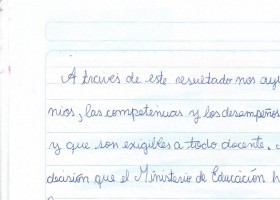 A través de este resultado nos ay
nios, las competencias y los desempeños
y que son exigibles a todo docente.
decisión que el Ministerio de Educación h